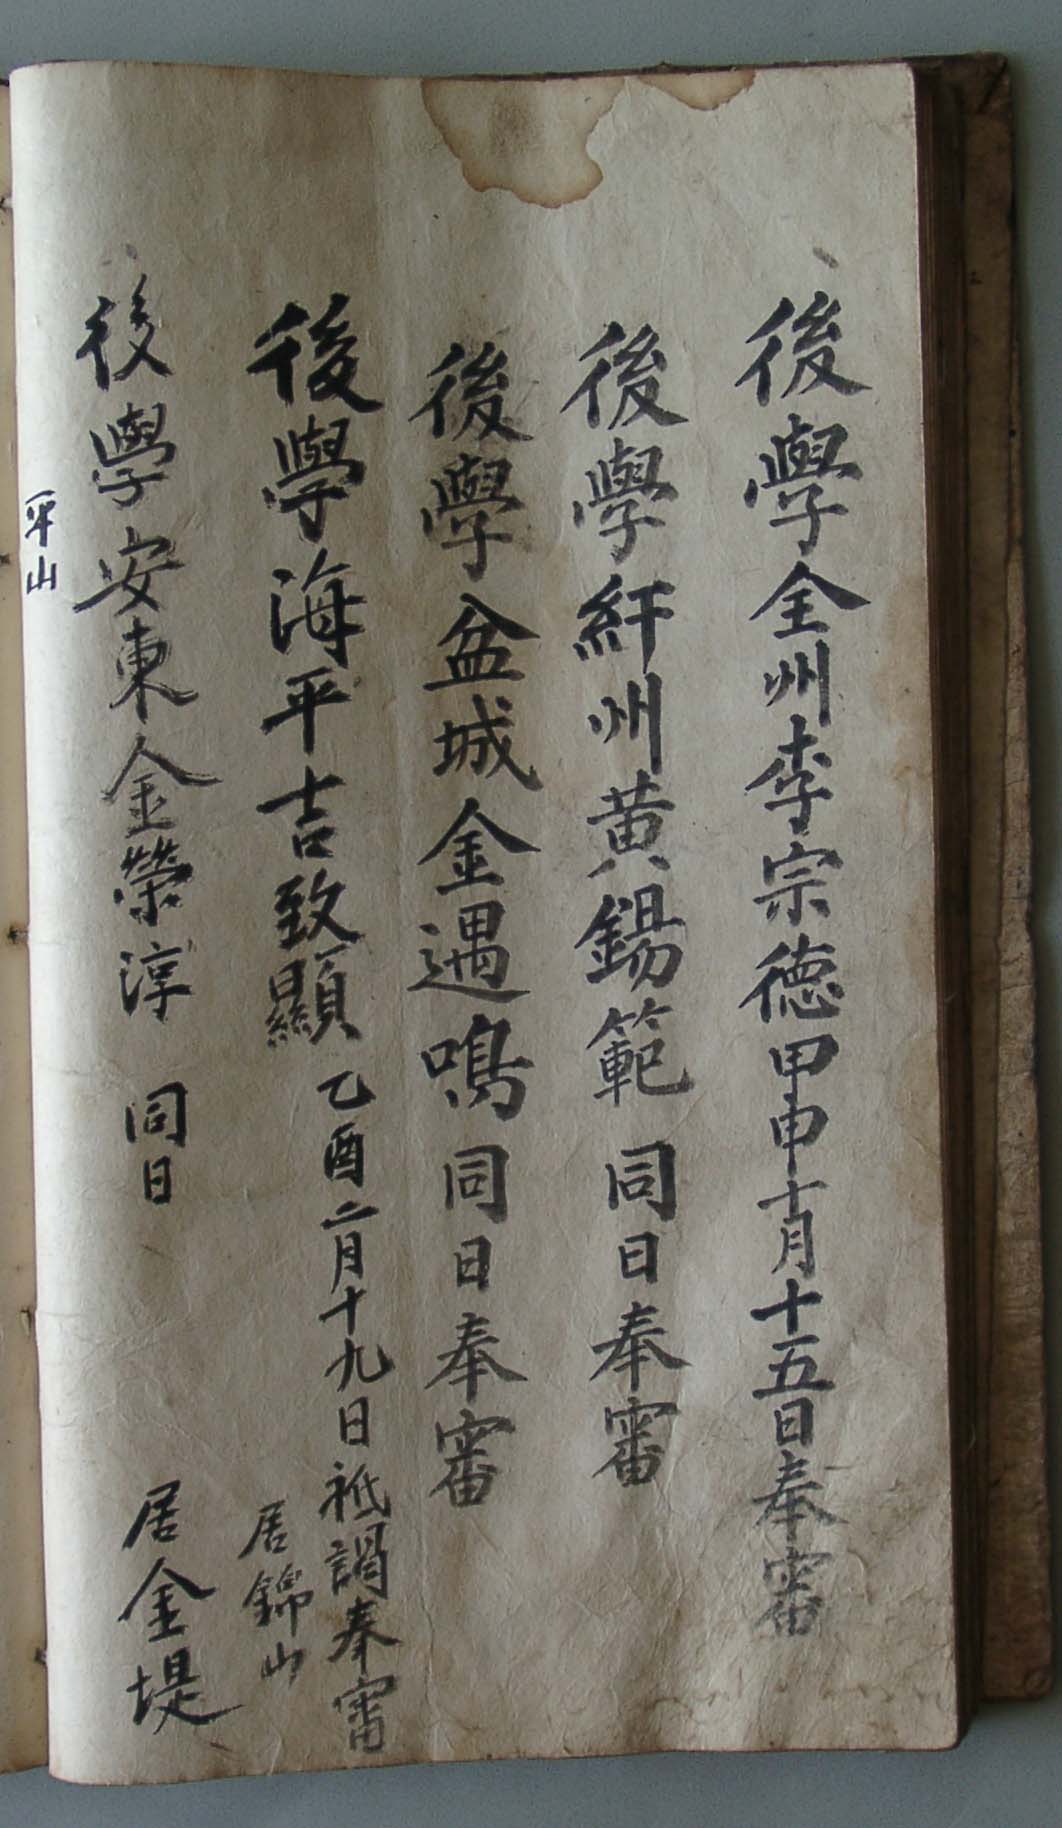 後學全州李宗德甲申十月十五日奉審
後學紆州黃錫範同日奉審
後學盆城金遇鳴同日奉審
後學海平吉致顯乙酉二月十九日祗謁奉審
居錦山
後學安東金榮淳 同日 居金堤
平山